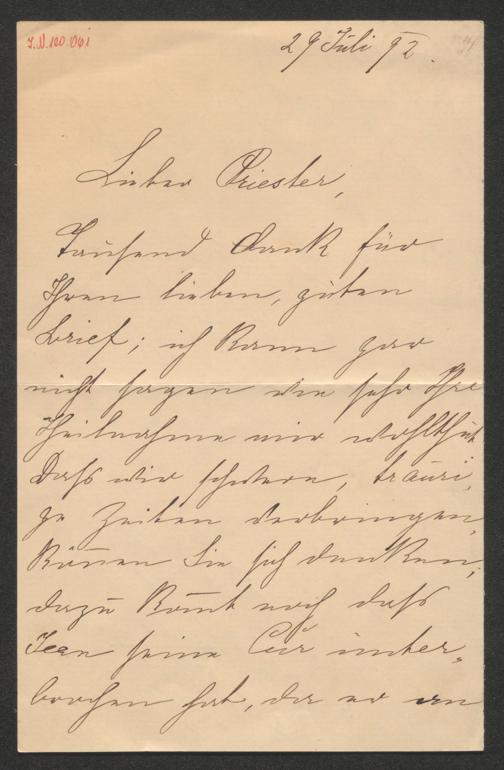 I.N. 120.061
29 Juli 92.
Lieber Priester,
Tausend Dank für
Ihren lieben, guten
Brief; ich kann gar
nicht sagen wie sehr Ihre
Theilnahme mir wohlthut
Dass wir schwere, trauri,
ge Zeiten verbringen,
können Sie sich denken;
dazu kom̅t noch dass
Jean seine Cur unter,
brochen hat, da er an